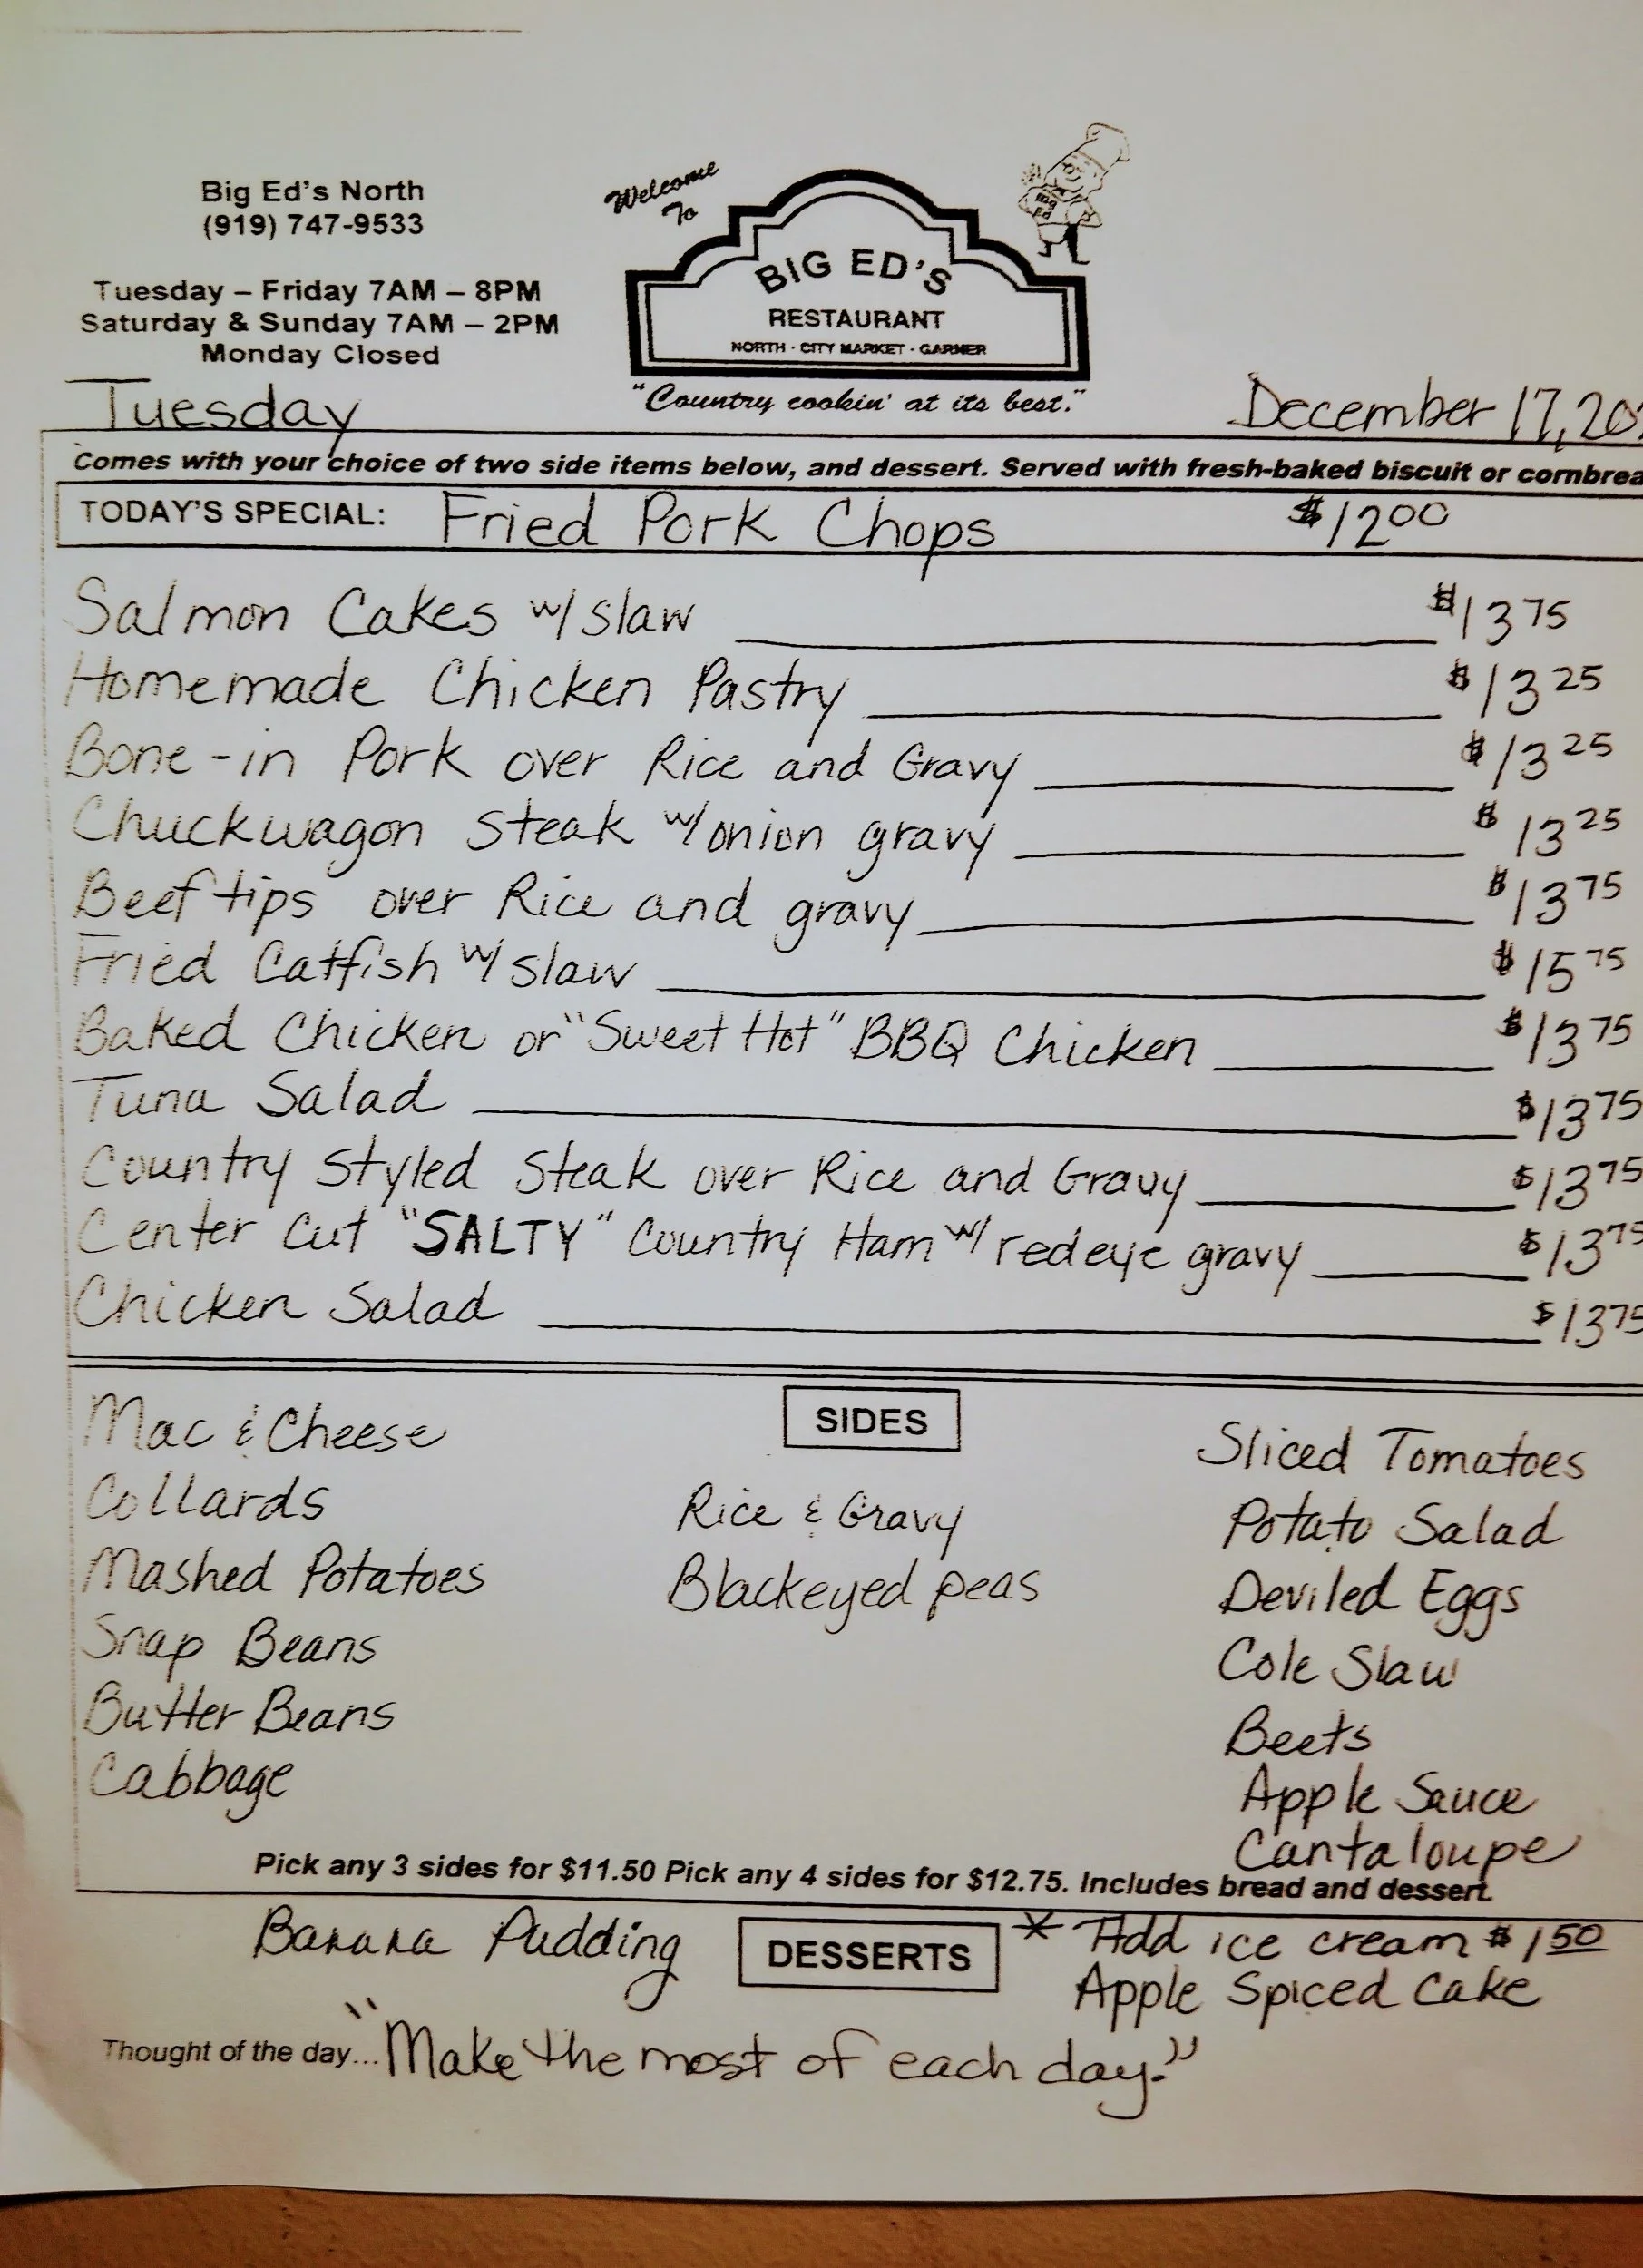 Big Ed's North
(919) 747-9533
Tuesday – Friday 7AM – 8PM
Saturday & Sunday 7AM – 2PM
Monday Closed
Welcome
To
Big Ed
BIG ED'S
RESTAURANT
NORTH · CITY MARKET · GARNER
"Country cookin' at its best."
Tuesday
December 17, 20
Comes with your choice of two side items below, and dessert. Served with fresh-baked biscuit or cornbrea
TODAY'S SPECIAL: Fried Pork Chops $12.00
Salmon Cakes w/ slaw $13 75
Homemade Chicken Pastry $13 25
Bone-in Pork over Rice and Gravy $13 25
Chuckwagon Steak w/ onion gravy $13 25
Beef tips over Rice and gravy $13 75
Fried Catfish w/ slaw $15 75
Baked Chicken or "Sweet Hot" BBQ Chicken $13 75
Tuna Salad $13 75
Country Styled Steak over Rice and Gravy $13 75
Center Cut "SALTY" Country Ham w/ redeye gravy $13 75
Chicken Salad $13 75
SIDES
Mac & Cheese
Collards
Mashed Potatoes
Snap Beans
Butter Beans
Cabbage
Rice & Gravy
Blackeyed peas
Sliced Tomatoes
Potato Salad
Deviled Eggs
Cole Slaw
Beets
Apple Sauce
Cantaloupe
Pick any 3 sides for $11.50 Pick any 4 sides for $12.75. Includes bread and dessert.
DESSERTS
Banana Pudding
* Add ice cream $1 50
Apple Spiced Cake
Thought of the day... "Make the most of each day."